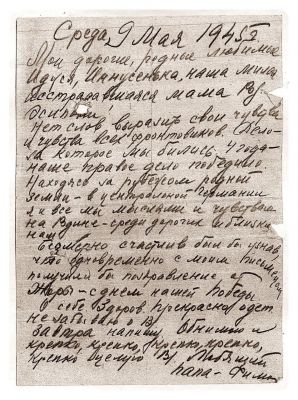 Среда, 9 Мая 1945г
Мои дорогие, родные любимые
Дуся, Иннусенька, наша милая
исстрадавшаяся мама
Нет слов выразить свои чувства
и чувства всех фронтовиков. Дело
за которое мы бились, 4 года
наше правое дело победило
Находясь за рубежом родной
земли - в центральной Германии
я и все мы мыслями и чувствами
на Родине - среди дорогих и близких
наших
Безмерно счастлив был бы узнав,
что одновременно с моим письмом
получили бы поздравление от
Жоры - с днем нашей Победы
Я себе здоров, прекрасно одет
не забываю о
Завтра напишу. Обнимаю и
крепко, крепко, крепко, крепко,
крепко целую Любящий
папа - Фима